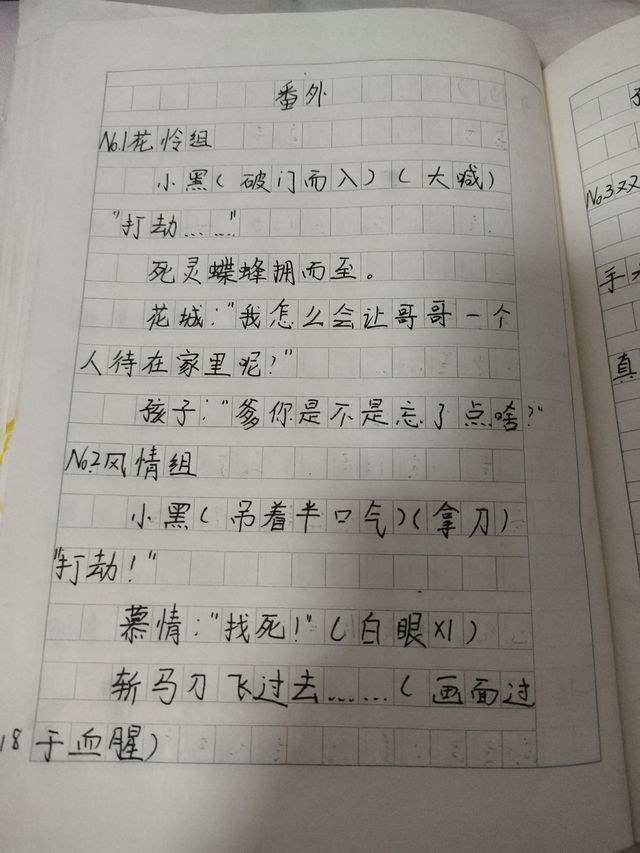 番外
No.1花怜组
小黑(破门而入)(大喊)
"打劫……"
死灵蝶蜂拥而至。
花城:"我怎么会让哥哥一个
人待在家里呢?"
孩子:"爹你是不是忘了点啥?"
No.2风情组
小黑(吊着半口气)(拿刀)
"打劫!"
慕情:"找死!"(白眼X1)
斩马刀飞过去……(画面过
于血腥)
18
No.3双
手
真